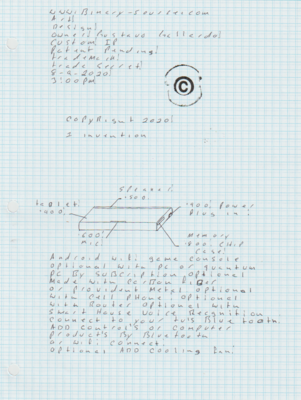 www.Binary-Source.com
Art!
Design!
Owner! Gustavo Gallardo!
Custom IP
Patent Pending!
Trademark!
Trade Secret!
8-9-2020!
3:00PM
©
CopyRight 2020!
5 invention
Speaker
Tablet
Power
Plug in!
Mic!
Memory
Chip
Case!
Android Wifi game console
Optional with Pc or quantum
Pc By Subscription Optional
Made with Carbon Fiber
or Providdnt Metal Optional
with Cell Phone! Optional
with Router Optional with
Smart House Voice Recognition
Connect to your tv's Bluetooth.
ADD Control's or Computer
product's By Bluetooth
or Wifi Connect.
Optional ADD Cooling Fan!